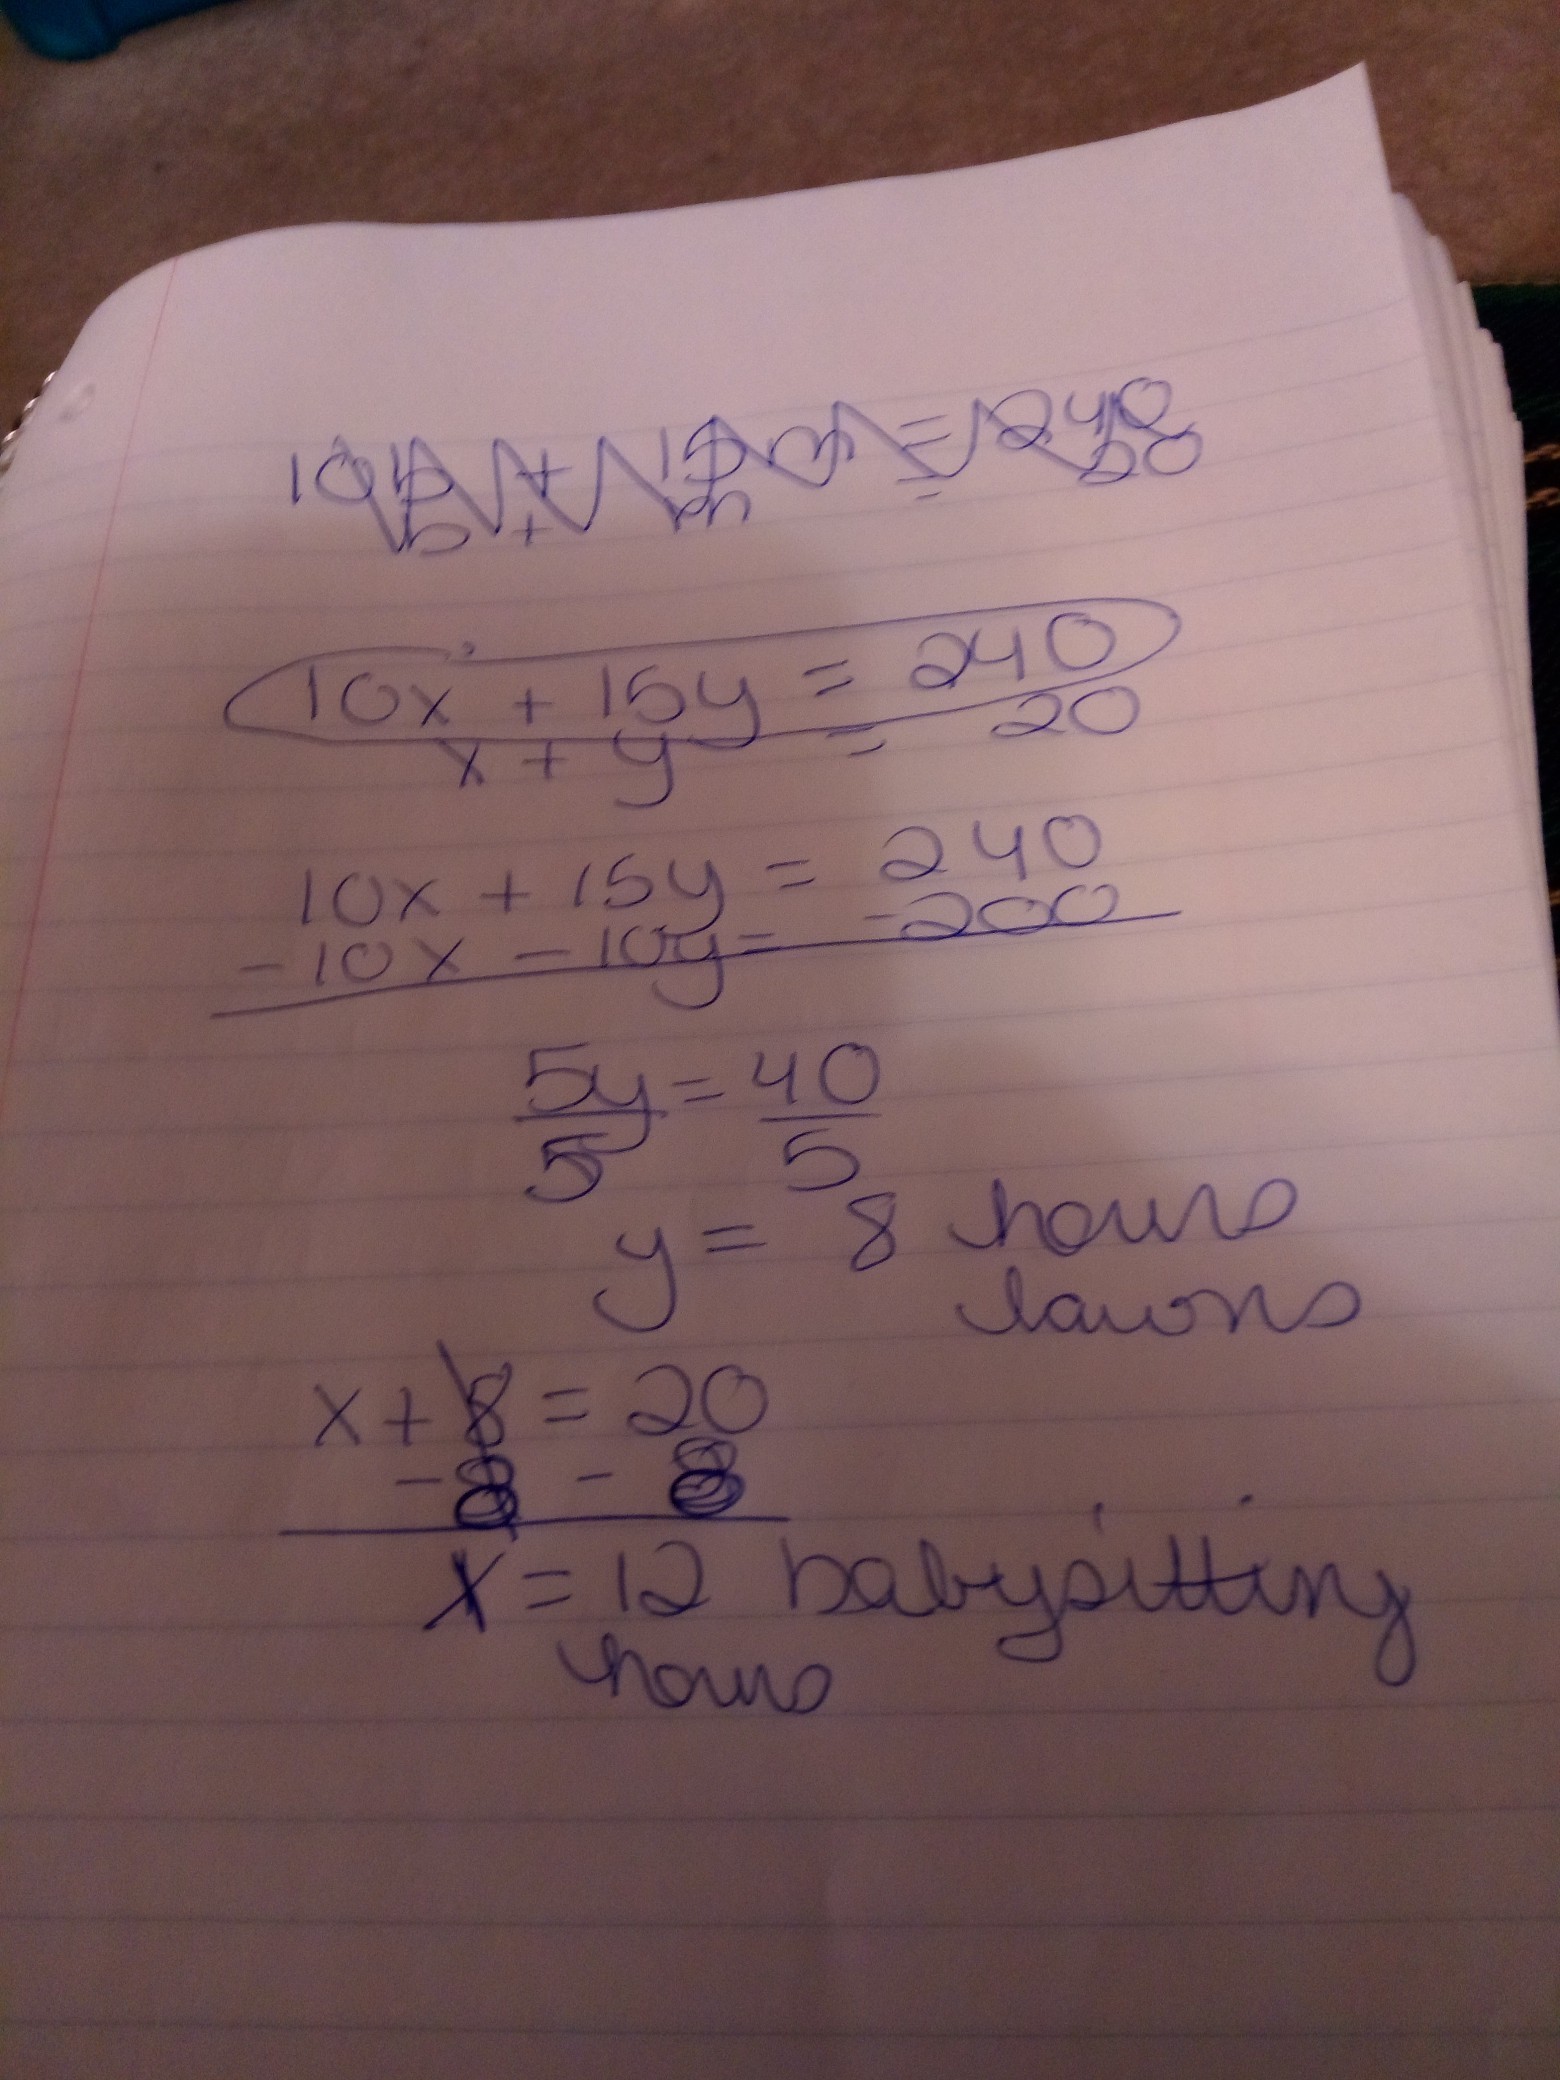 10b + 15m = 240
b + m = 20
10x + 15y = 240
x + y = 20
10x + 15y = 240
-10x - 10y = -200
5y = 40
5 5
y = 8 hours
lawns
x + 8 = 20
- 8 - 8
x = 12 babysitting
hours